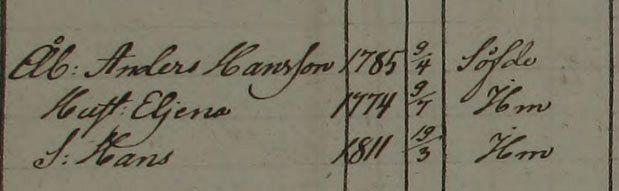 Åb: Anders Hansson 1785 9/4 Söfde
Hust: Eljena 1774 9/7 Hm
S: Hans 1811 19/3 Hm